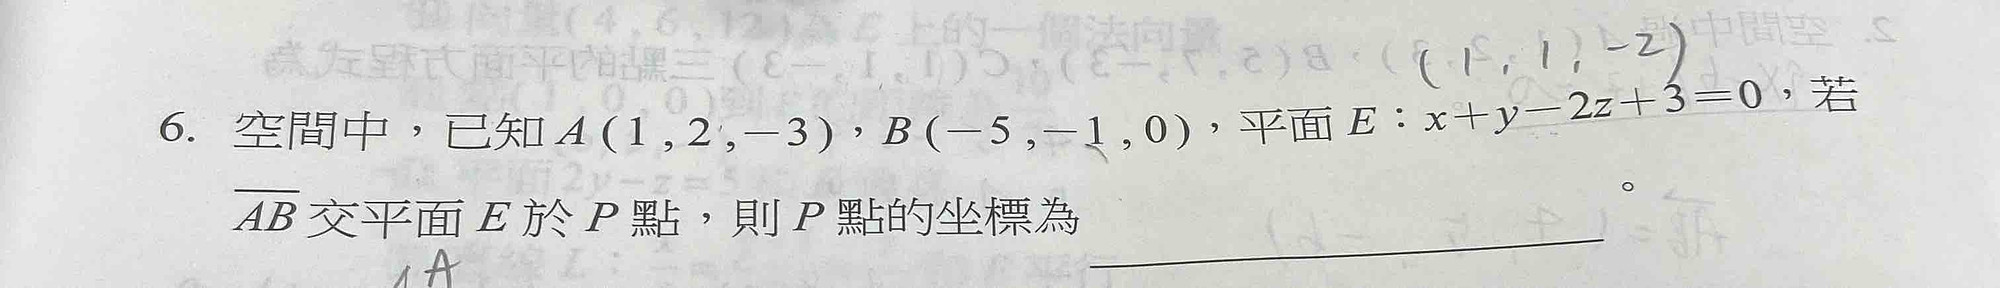 (1,1,-2)
6. 空間中，已知A(1,2,-3)，B(-5,-1,0)，平面E：x+y-2z+3=0，若
\overline{AB}交平面E於P點，則P點的坐標為＿＿＿＿＿。
A